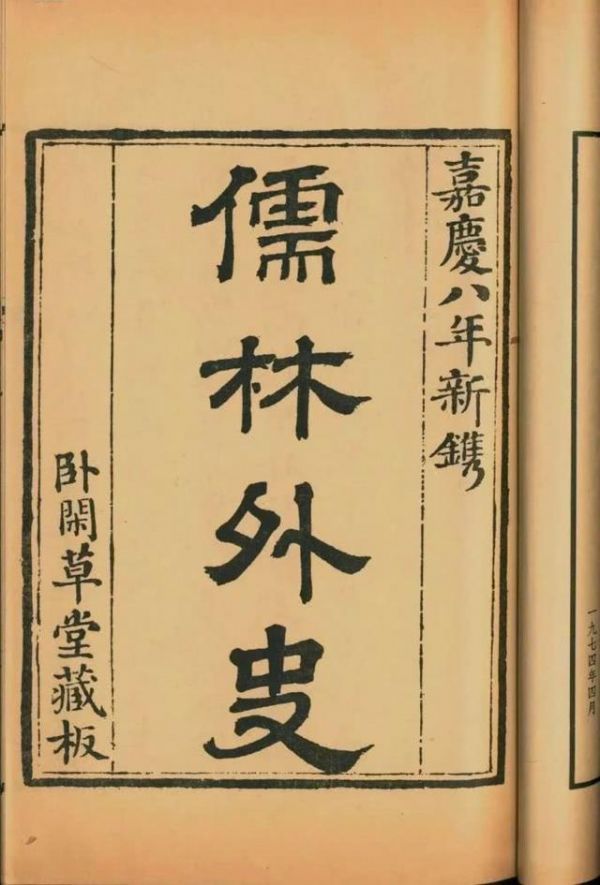 嘉慶八年新鐫
儒林外史
卧閑草堂藏板
一九七四年四月